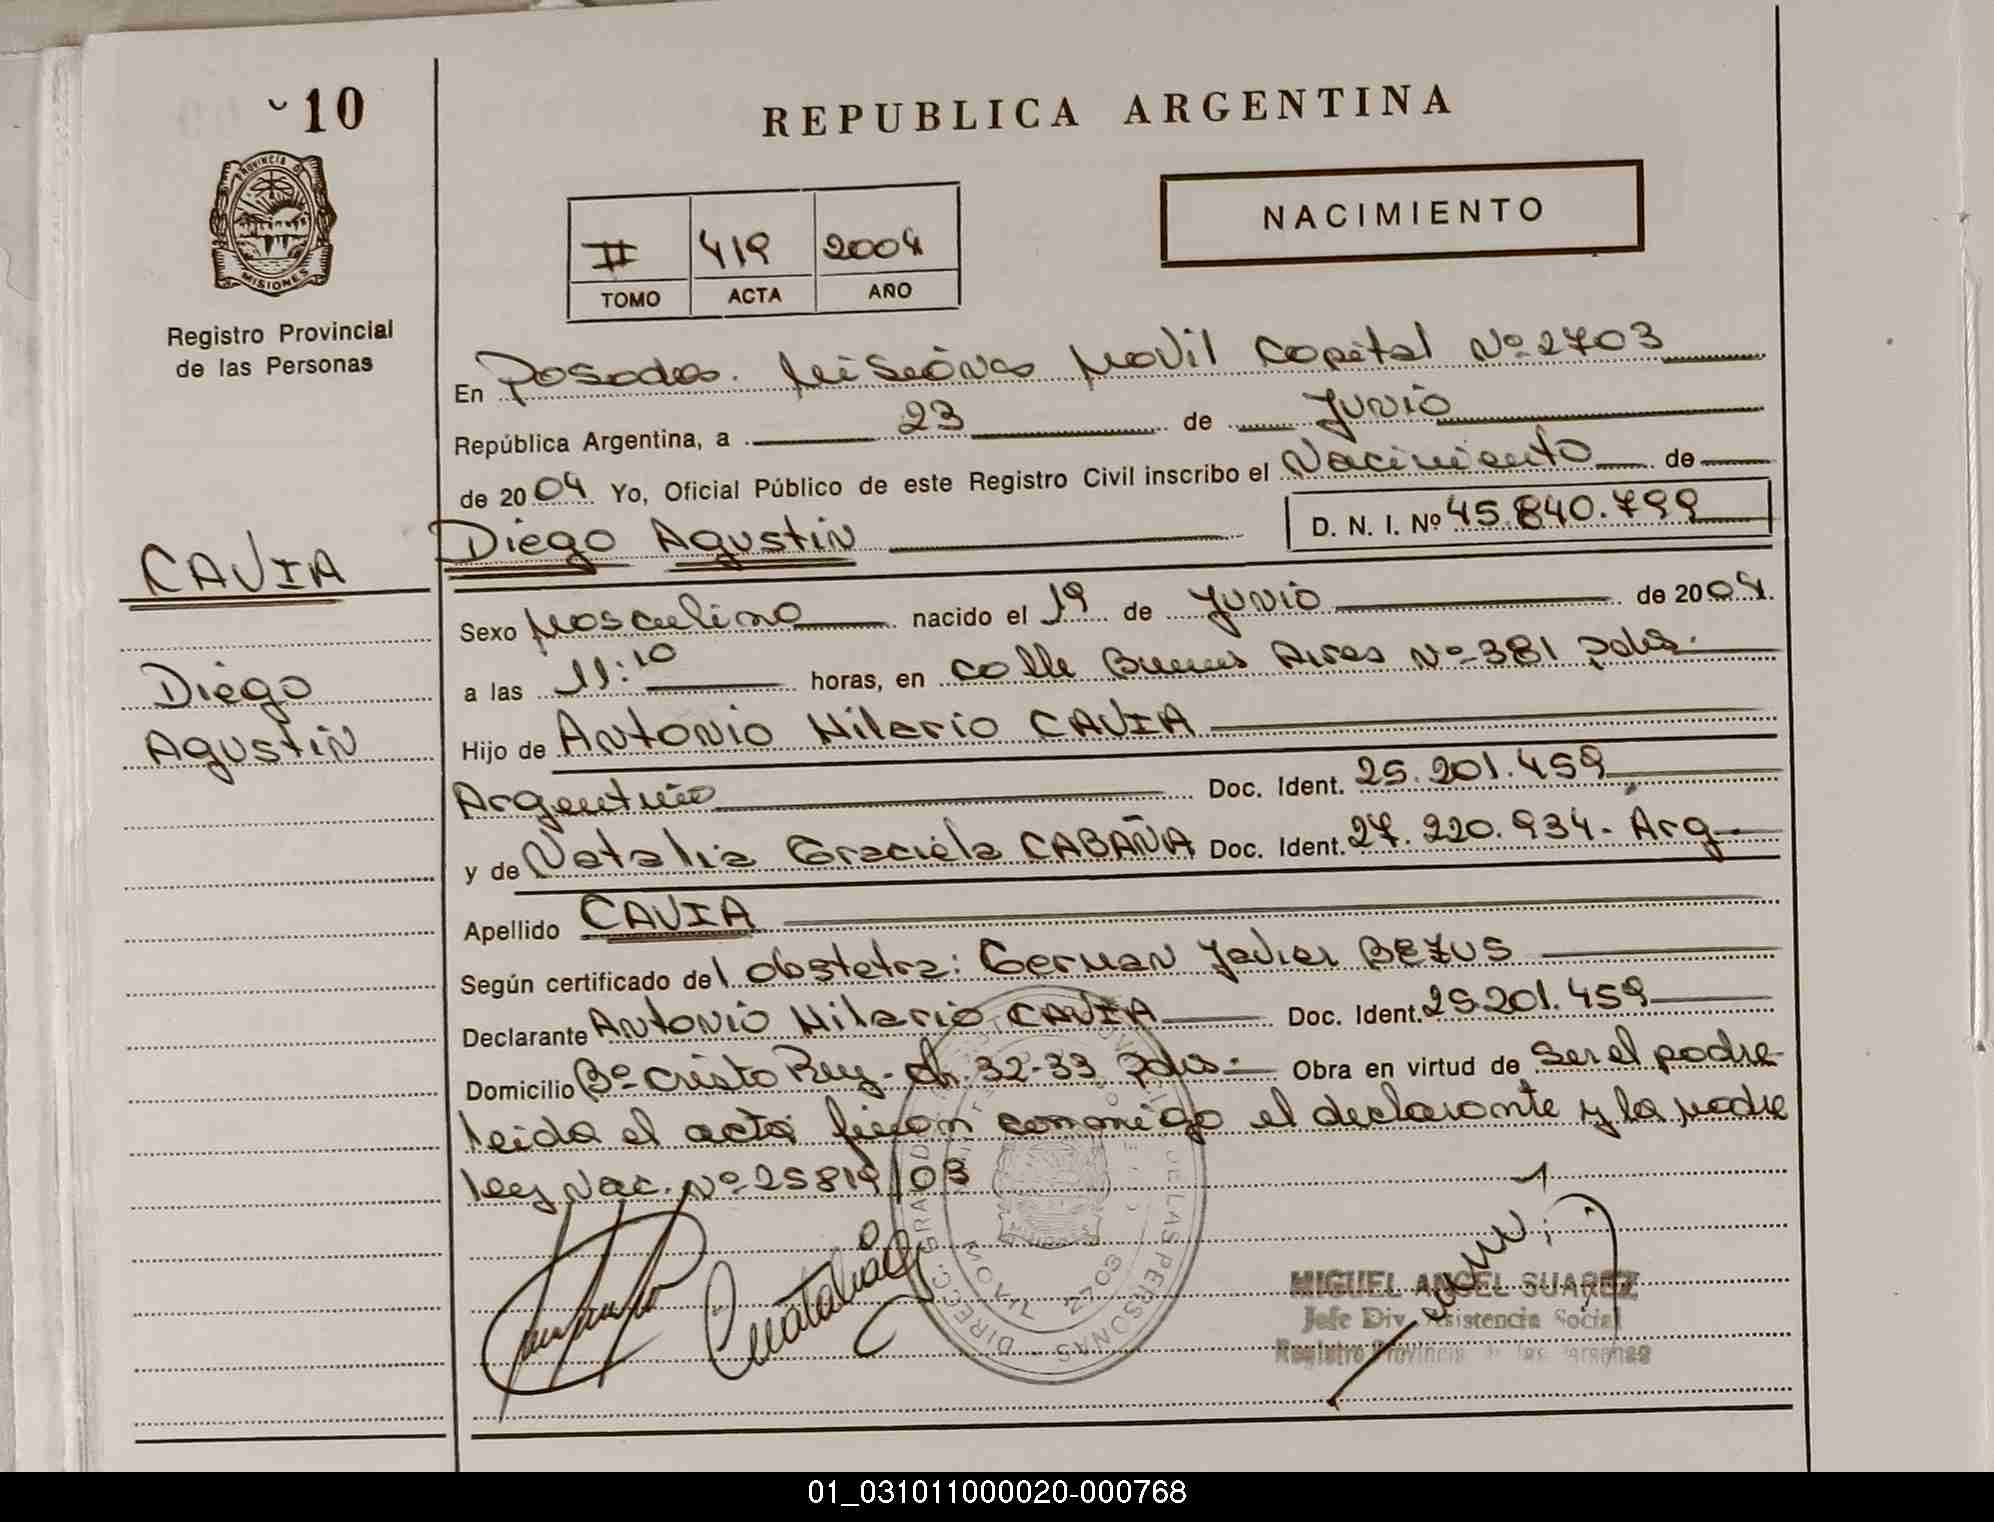 10
REPUBLICA ARGENTINA
PROVINCIA DE
MISIONES
Registro Provincial
de las Personas
II 419 2004
TOMO ACTA AÑO
NACIMIENTO
En Posadas. Misiones Movil Capital Nº 2703
República Argentina, a 23 de Junio
de 2004 Yo, Oficial Público de este Registro Civil inscribo el Nacimiento de
Diego Agustin D. N. I. Nº 45.840.799
CAVIA
Diego
Agustin
Sexo Masculino nacido el 19 de Junio de 2004.
a las 11:10 horas, en calle Buenos Aires Nº 381 pdas.
Hijo de Antonio Hilario CAVIA
Argentino Doc. Ident. 25.201.459
y de Natalia Graciela CABAÑA Doc. Ident. 27.220.934 - Arg.
Apellido CAVIA
Según certificado del obstetra: German Javier BEZUS
Declarante Antonio Hilario CAVIA Doc. Ident. 25.201.459
Domicilio Bº Cristo Rey - ch. 32-33 pdas. Obra en virtud de ser el padre
leida el acta firman conmigo el declarante y la madre
ley Nac. Nº 25819/03
MOVIL 2703
DE LAS PERSONAS
MIGUEL ANGEL SUAREZ
Jefe Div. Asistencia Social
Registro Provincial de las Personas
01_031011000020-000768